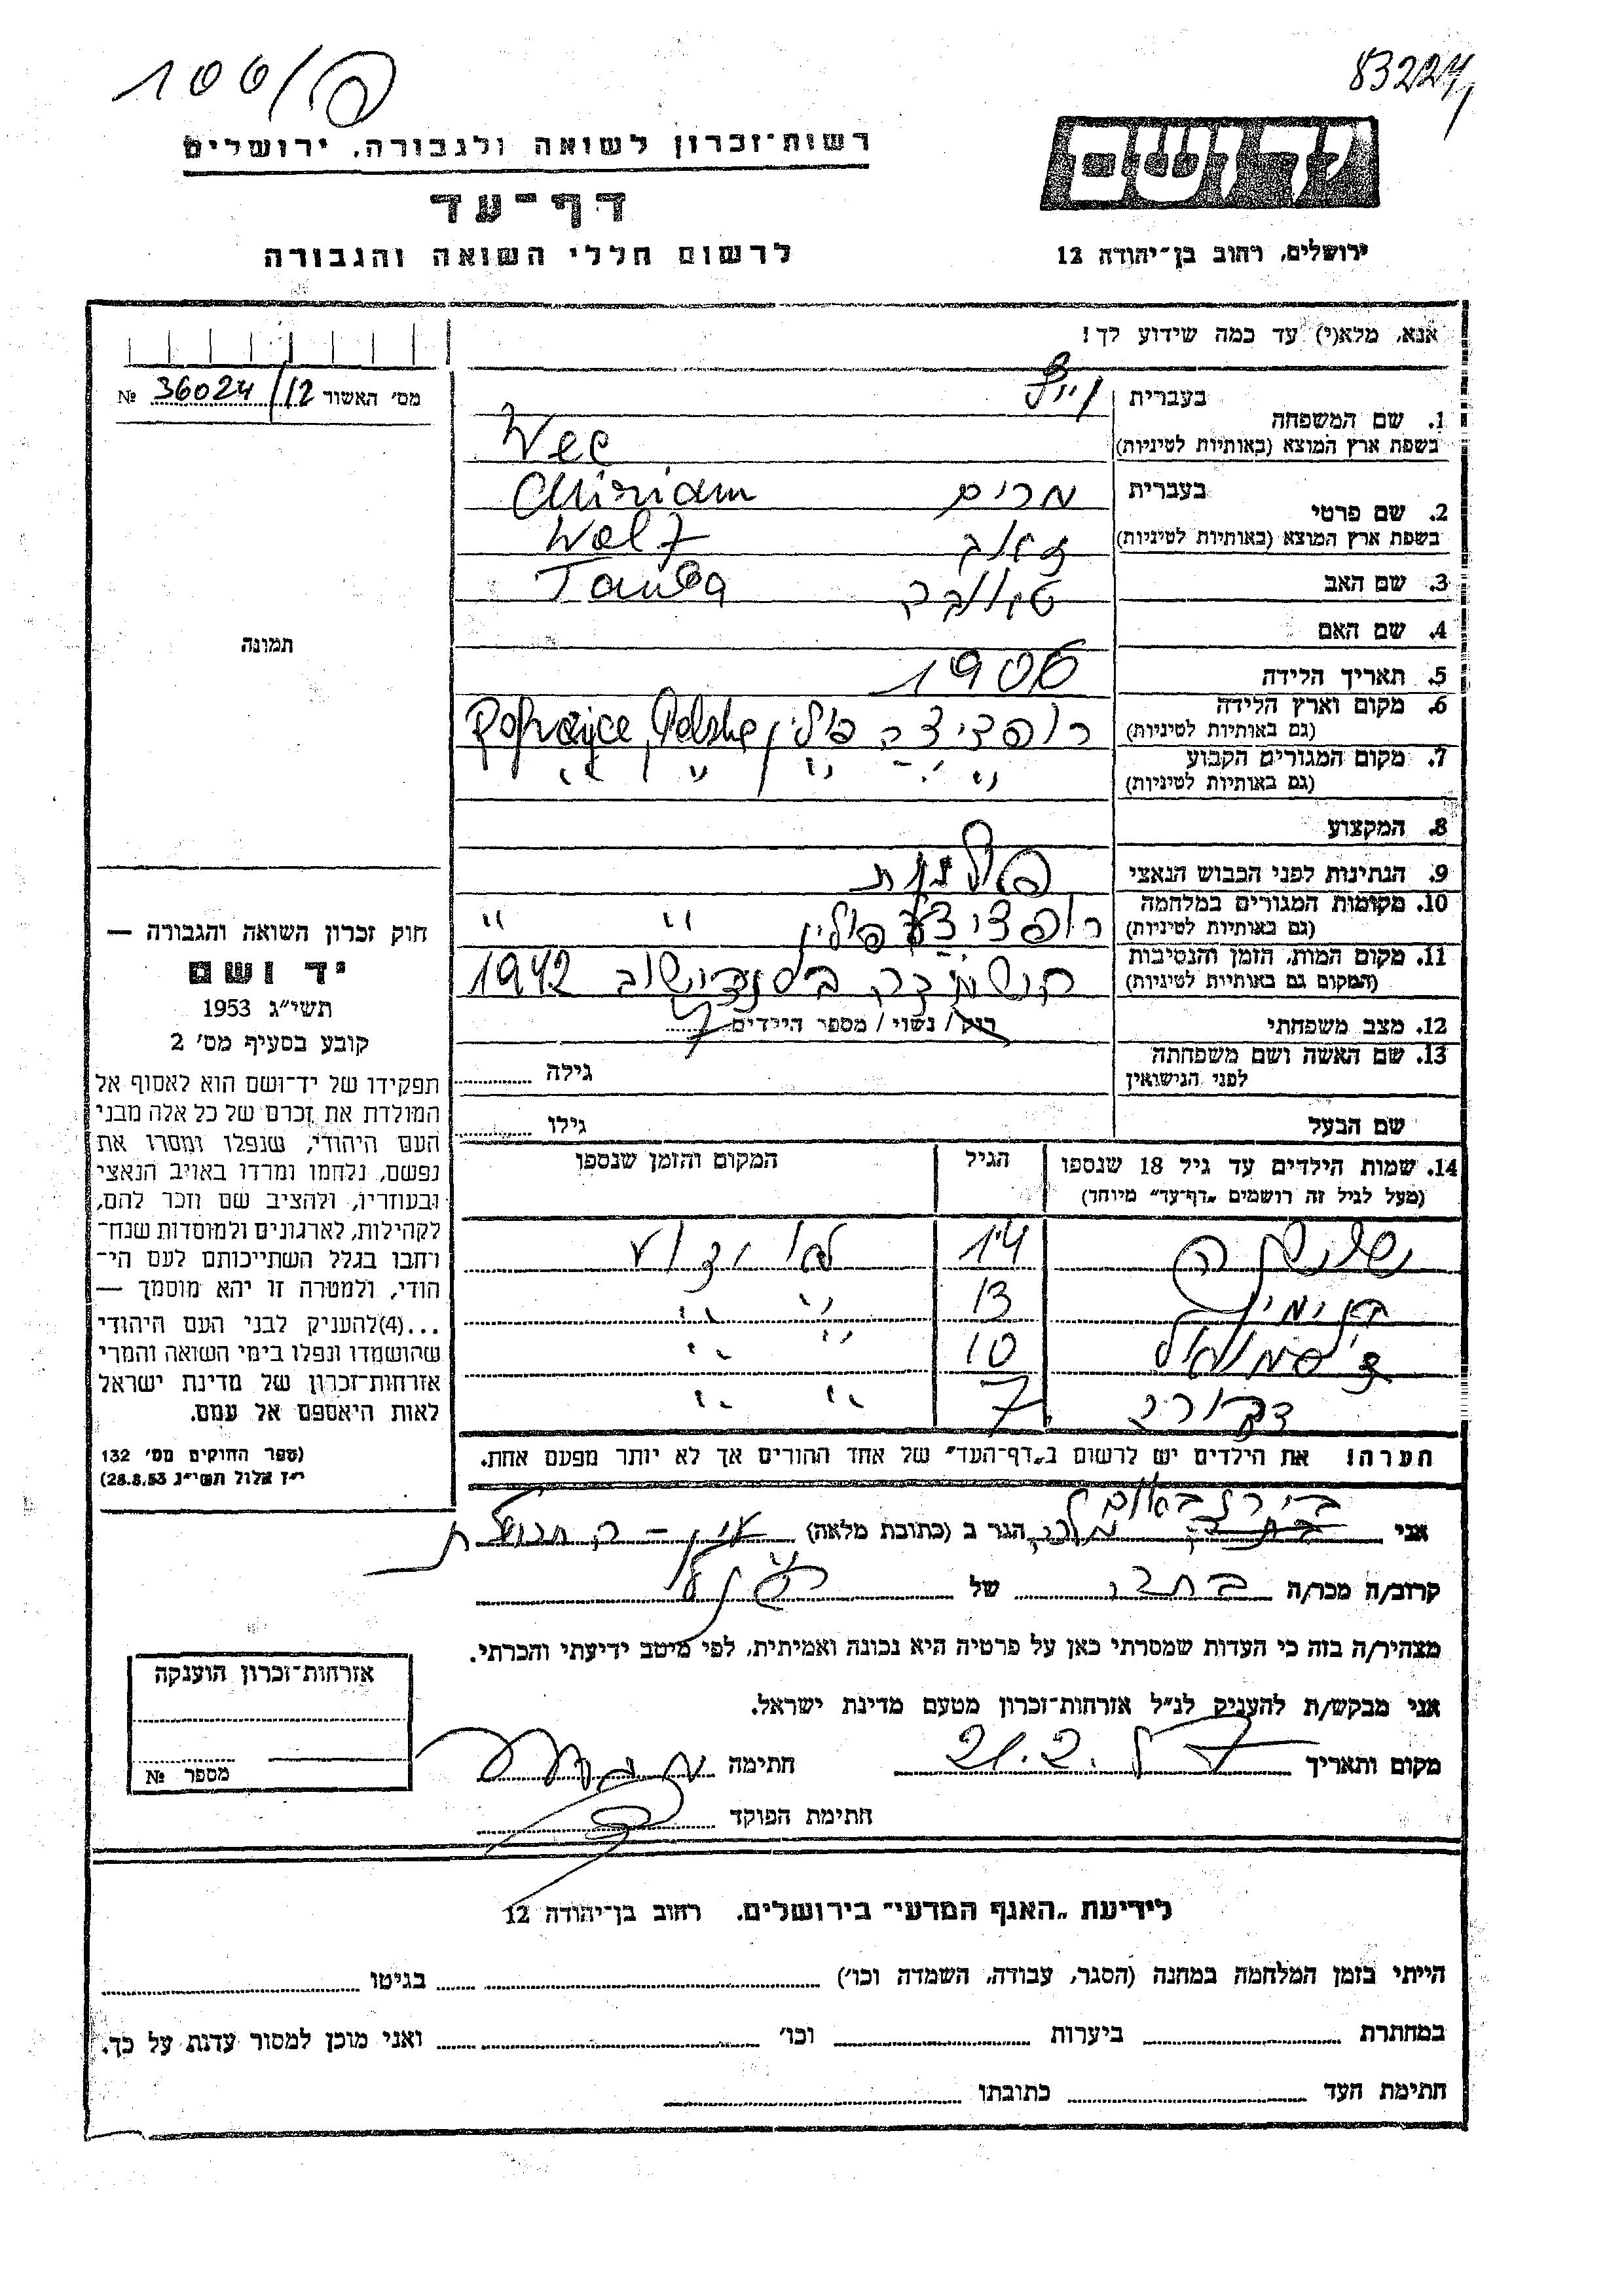 83224
100/פ
יד ושם
רשות־זכרון לשואה ולגבורה, ירושלים
דף־עד
לרשום חללי השואה והגבורה
ירושלים, רחוב בן־יהודה 12
אנא, מלא(י) עד כמה שידוע לך!
מס׳ האשור 36024/12 №
1. שם המשפחה בעברית
בשפת ארץ המוצא (באותיות לטיניות) Wee
2. שם פרטי בעברית מרים Miriam
בשפת ארץ המוצא (באותיות לטיניות) זאב Wolf
3. שם האב טאובה Tauba
4. שם האם
5. תאריך הלידה 1906
6. מקום וארץ הלידה רופציצה פולין Ropczyce, Polska
(גם באותיות לטיניות)
7. מקום המגורים הקבוע " " " "
(גם באותיות לטיניות)
8. המקצוע
9. הנתינות לפני הכבוש הנאצי פולנית
10. מקומות המגורים במלחמה רופציצה פולין " "
(גם באותיות לטיניות)
11. מקום המות, הזמן והנסיבות הושמדה בסנדישוב 1942
(המקום גם באותיות לטיניות)
12. מצב משפחתי רוק / נשוי / מספר הילדים 7
13. שם האשה ושם משפחתה גילה
לפני הנישואין
שם הבעל גילו
14. שמות הילדים עד גיל 18 שנספו הגיל המקום והזמן שנספו
(מעל לגיל זה רושמים „דף־עד" מיוחד)
14 לא ידוע
בנימין 13 " "
10 " "
דבורה 7 " "
הערה! את הילדים יש לרשום ב„דף־העד" של אחד ההורים אך לא יותר מפעם אחת.
תמונה
חוק זכרון השואה והגבורה —
יד ושם
תשי״ג 1953
קובע בסעיף מס׳ 2
תפקידו של יד־ושם הוא לאסוף אל
המולדת את זכרם של כל אלה מבני
העם היהודי, שנפלו ומסרו את
נפשם, נלחמו ומרדו באויב הנאצי
ובעוזריו, ולהציב שם וזכר להם,
לקהילות, לארגונים ולמוסדות שנח־
רחבו בגלל השתייכותם לעם הי־
הודי, ולמטרה זו יהא מוסמך —
...(4) להעניק לבני העם היהודי
שהושמדו ונפלו בימי השואה והמרי
אזרחות־זכרון של מדינת ישראל
לאות היאספם אל עמם.
(ספר החוקים מס׳ 132
י״ז אלול תשי״ג 28.8.53)
בירנבאום
אני הגר ב (כתובת מלאה) עין־החורש
קרוב/ה מכר/ה של
מצהיר/ה בזה כי העדות שמסרתי כאן על פרטיה היא נכונה ואמיתית, לפי מיטב ידיעתי והכרתי.
אני מבקש/ת להעניק לנ״ל אזרחות־זכרון מטעם מדינת ישראל.
מקום ותאריך 21.2. חתימה
חתימת הפוקד
אזרחות־זכרון הוענקה
מספר №
לידיעת „האגף המדעי" בירושלים, רחוב בן־יהודה 12
הייתי בזמן המלחמה במחנה (הסגר, עבודה, השמדה וכו׳) בגיטו
במחתרת ביערות וכו׳ ואני מוכן למסור עדות על כך.
חתימת העד כתובתו